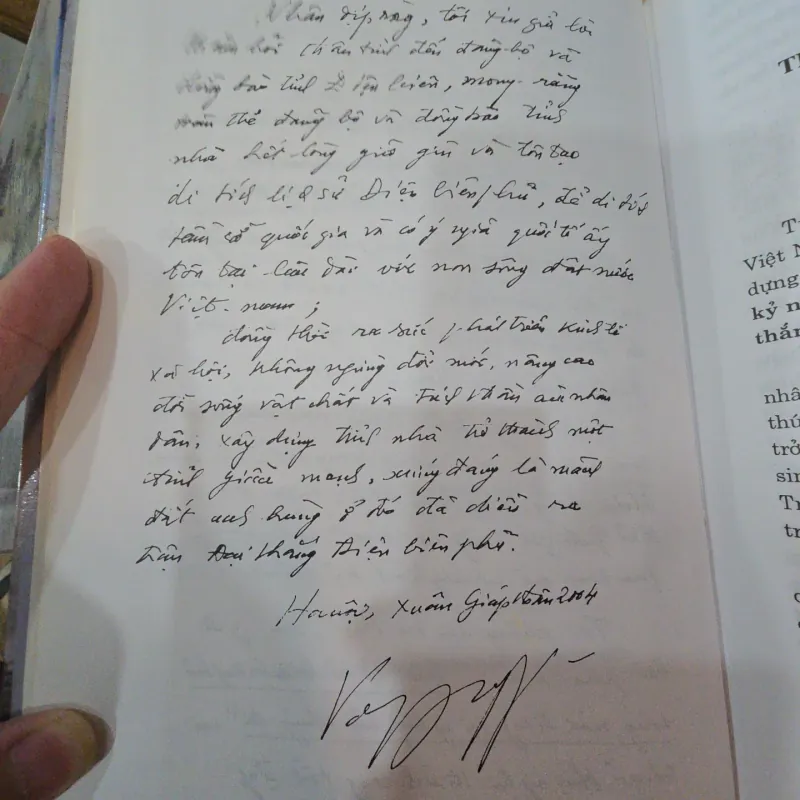 Nhân dịp này, tôi xin gửi lời
thăm hỏi chân tình đến đảng bộ và
đồng bào tỉnh Điện biên, mong rằng
toàn thể đảng bộ và đồng bào tỉnh
nhà hết lòng giữ gìn và tôn tạo
di tích lịch sử Điện biên phủ, để di tích
tầm cỡ quốc gia và có ý nghĩa quốc tế ấy
tồn tại lâu dài với non sông đất nước
Việt-nam;
đồng thời ra sức phát triển kinh tế
xã hội, không ngừng đổi mới, nâng cao
đời sống vật chất và tinh thần của nhân
dân, xây dựng tỉnh nhà trở thành một
tỉnh giàu mạnh, xứng đáng là mảnh
đất anh hùng ở đó đã diễn ra
trận Đại thắng Điện biên phủ.
Hà nội, Xuân Giáp thân 2004
T
Việt N
dựng
kỷ n
thắn
nhâ
thú
trở
sin
Tr
tr